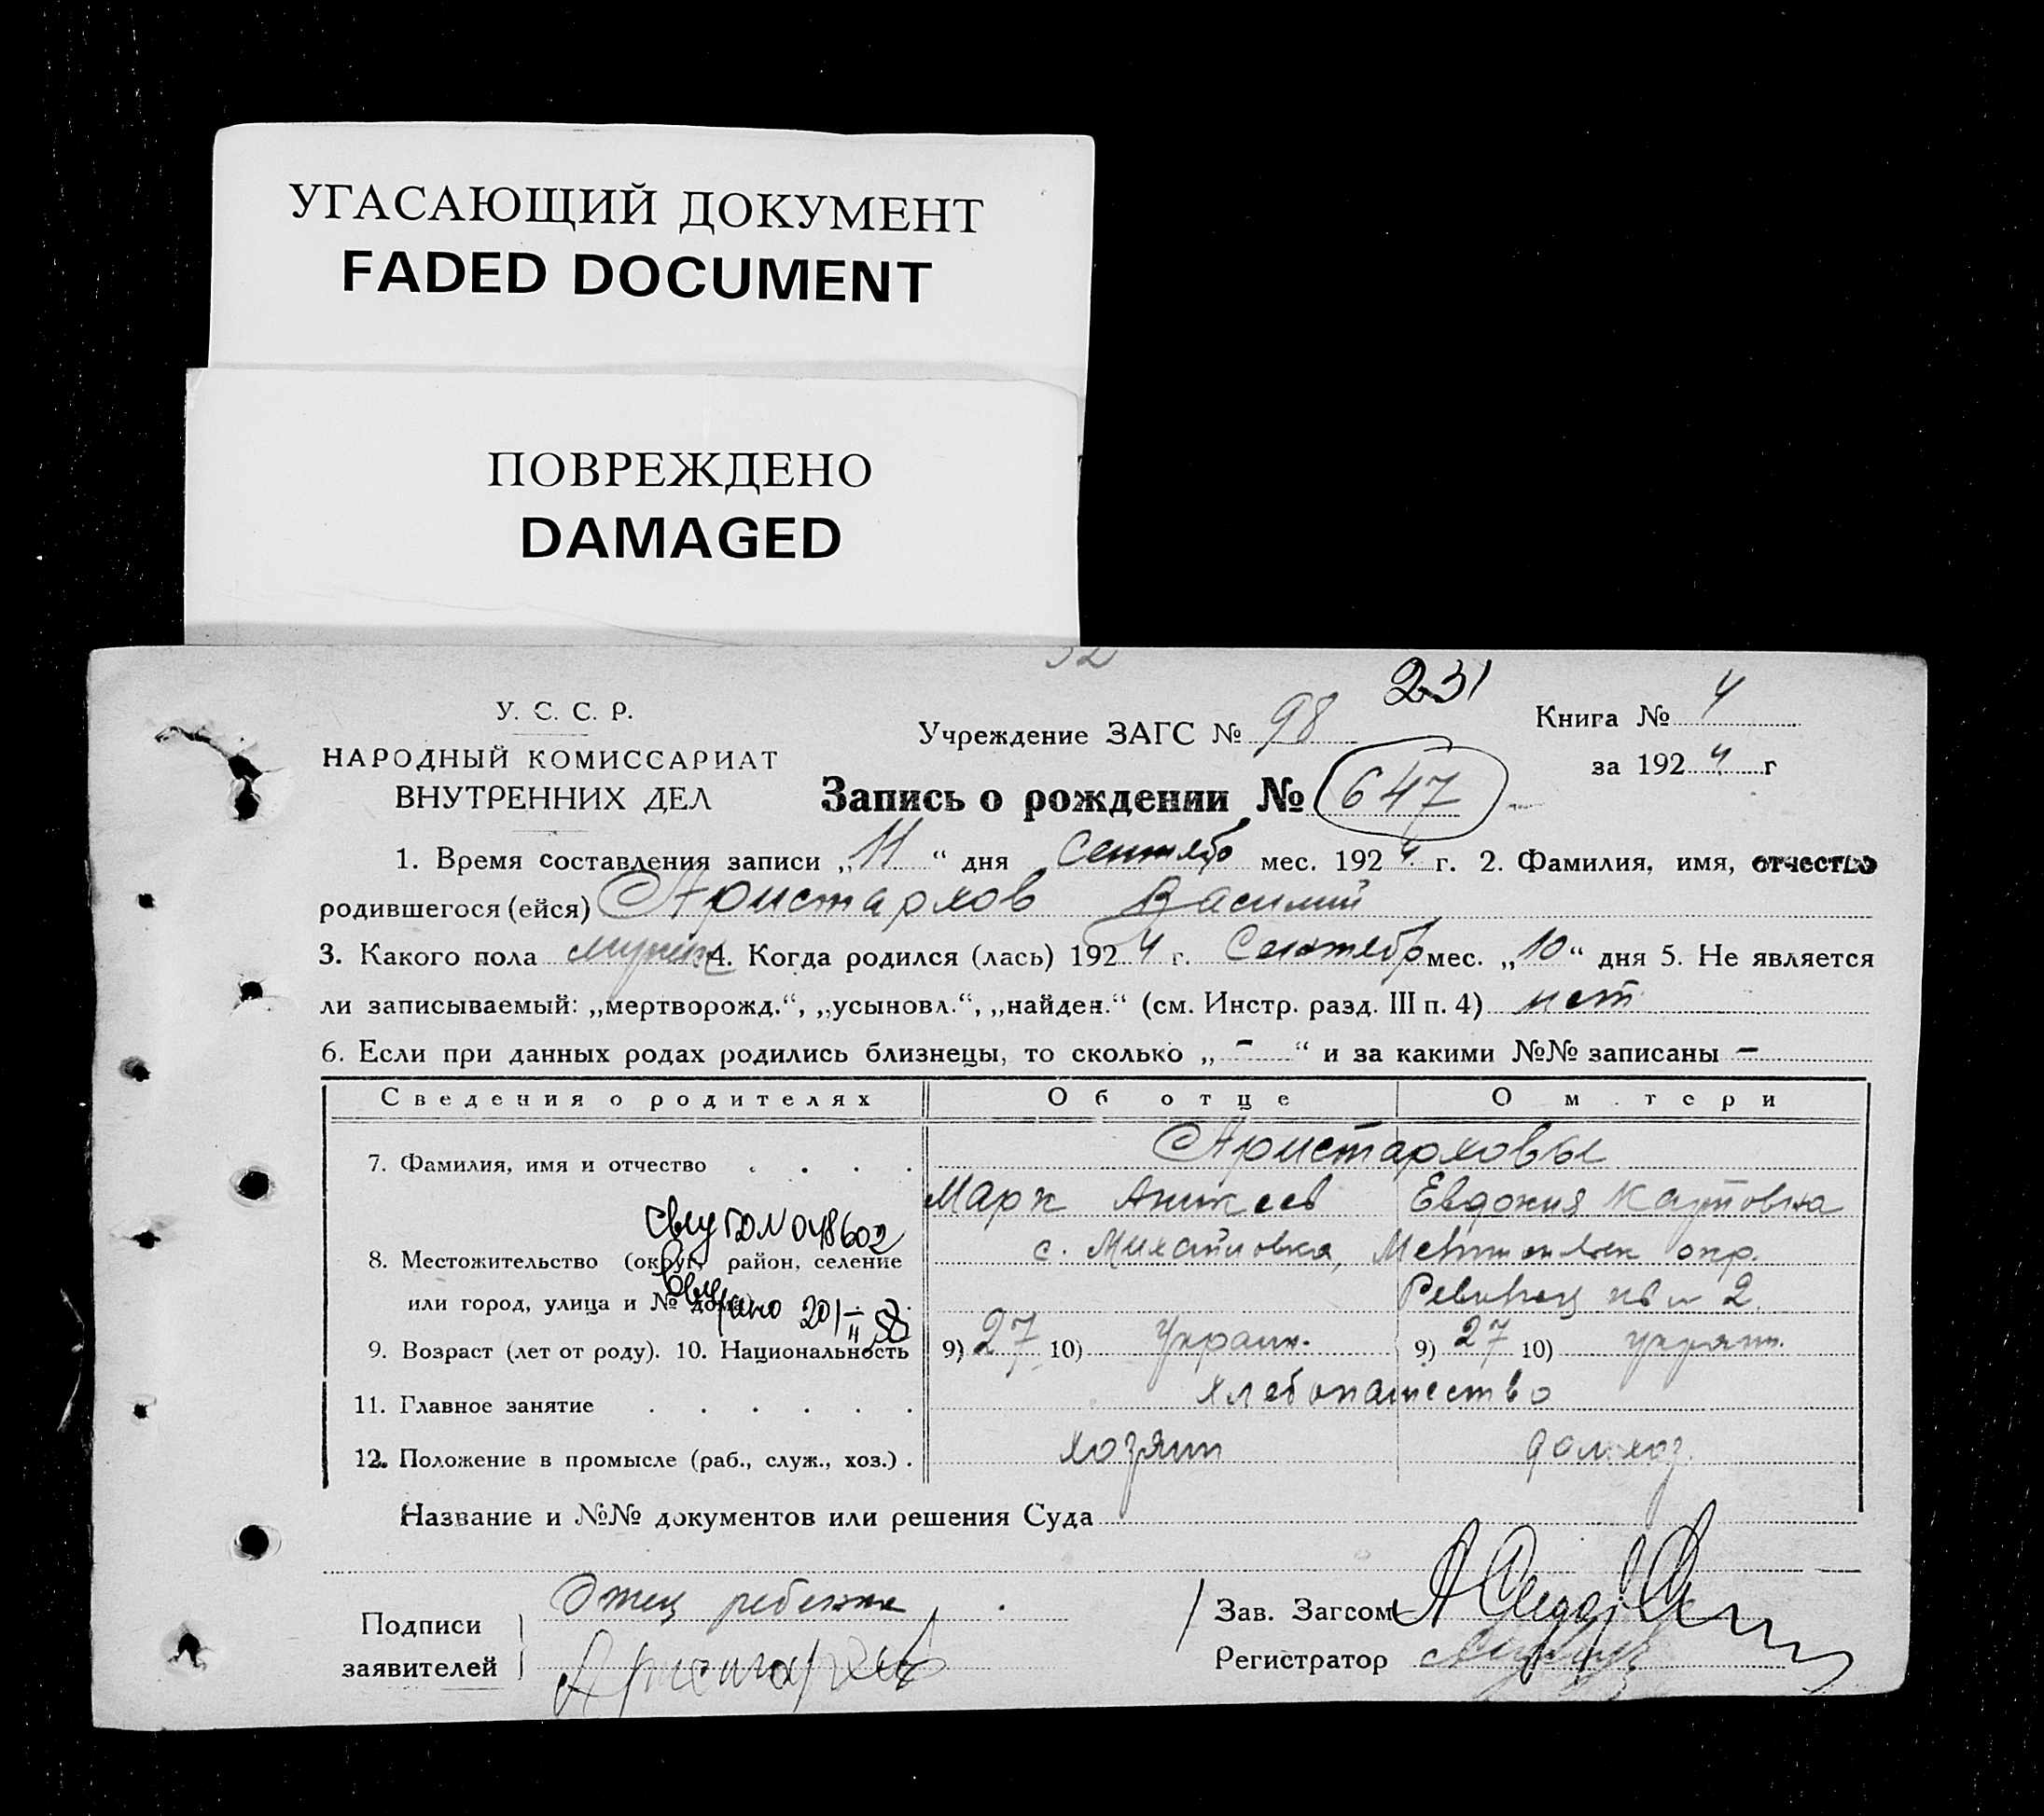 УГАСАЮЩИЙ ДОКУМЕНТ
FADED DOCUMENT
ПОВРЕЖДЕНО
DAMAGED
32
231
У. С. С. Р.
НАРОДНЫЙ КОМИССАРИАТ
ВНУТРЕННИХ ДЕЛ
Учреждение ЗАГС № 98
Книга № 4
за 1924 г
Запись о рождении № 647
1. Время составления записи „11“ дня Сентябр мес. 1924 г. 2. Фамилия, имя, отчество
родившегося (ейся) Аристархов Василий
3. Какого пола мужск 4. Когда родился (лась) 1924 г. Сентябр мес. „10“ дня 5. Не является
ли записываемый: „мертворожд.“, „усыновл.“, „найден.“ (см. Инстр. разд. III п. 4) нет
6. Если при данных родах родились близнецы, то сколько „-“ и за какими №№ записаны -
Сведения о родителях Об отце О м тери
7. Фамилия, имя и отчество . . . . Аристарховы
Марк Аникеев Евдокия Карповна
8. Местожительство (округ, район, селение с. Михайловка, окр.
или город, улица и № дома) 2.
N 048602
201
9. Возраст (лет от роду). 10. Национальность 9) 27 10) Украин. 9) 27 10) украин.
11. Главное занятие . . . . . . хлебопашество
12. Положение в промысле (раб., служ., хоз.) . хозяин дом. хоз.
Название и №№ документов или решения Суда
Подписи заявителей Отец ребенка
Аристархов
Зав. Загсом
Регистратор